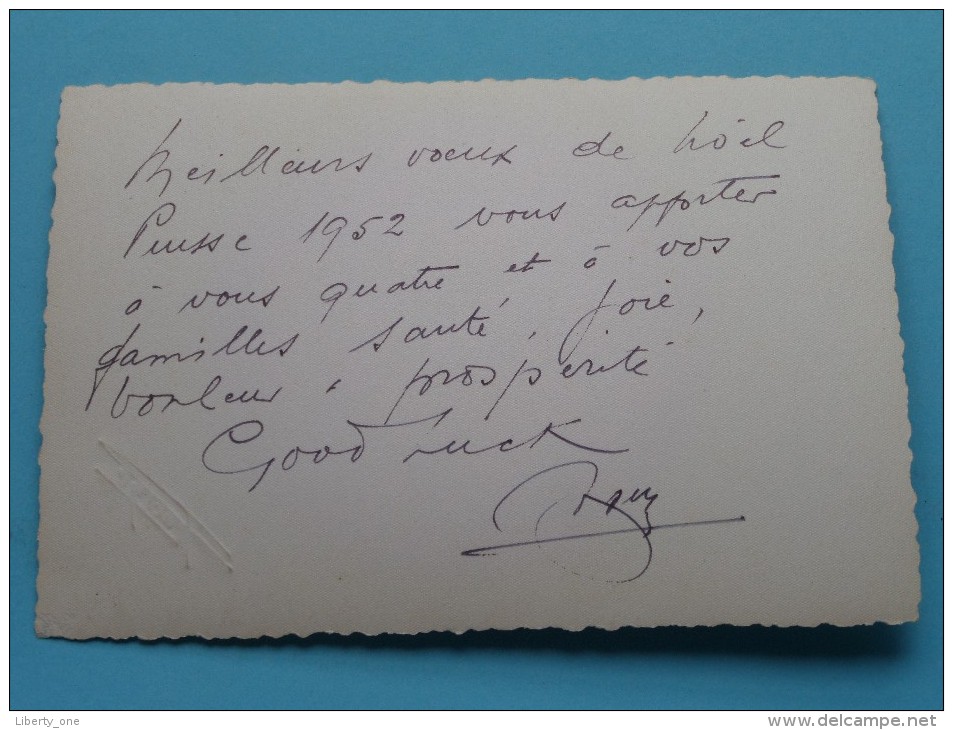 Meilleurs voeux de Noël
Puisse 1952 vous apporter
à vous quatre et à vos
familles santé, joie,
bonheur, prospérité
Good Luck
Liberty_one
www.delcampe.net